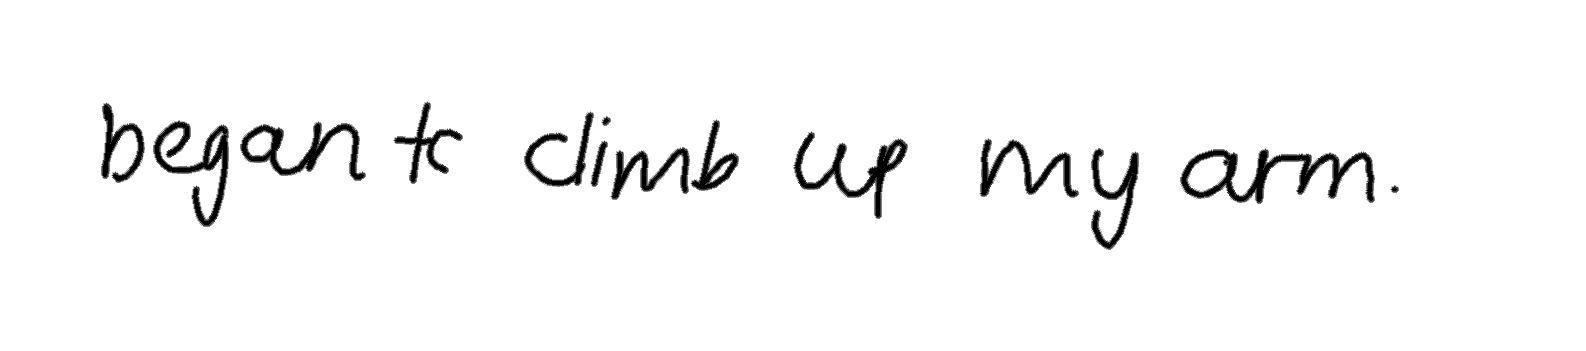 began to climb up my arm.